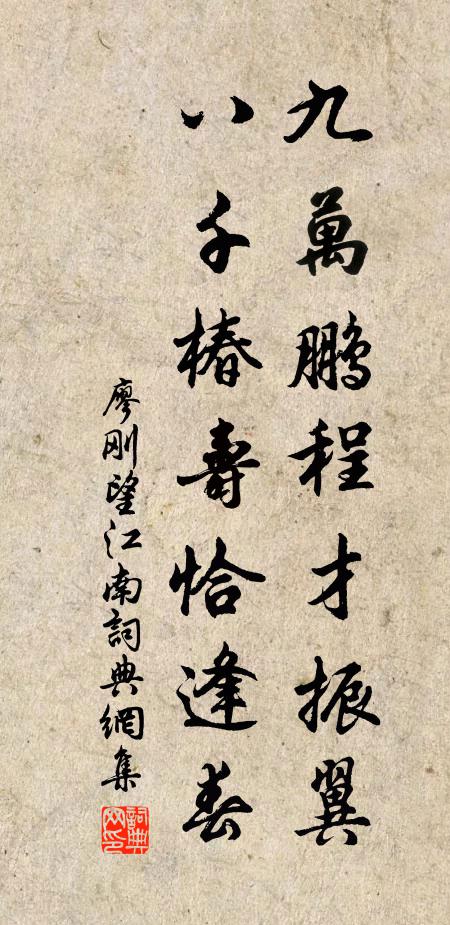 九萬鵬程才振翼
八千椿壽恰逢春
廖剛望江南詞典網集
詞典網印